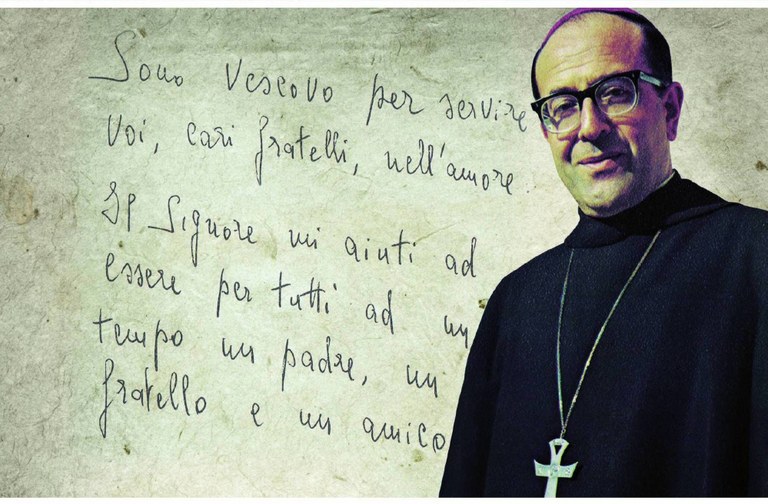 Sono Vescovo per servire
Voi, cari fratelli, nell'amore
Il Signore mi aiuti ad
essere per tutti ad un
tempo un padre, un
fratello e un amico